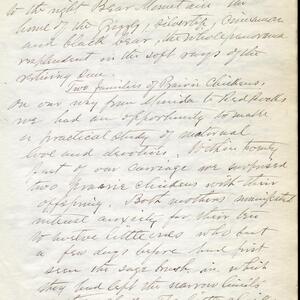 to the right Bear Mountain the
home of the Grizzly, Silvertip, Cinnamon
and black bear, the whole panorama
resplendent in the soft rays of the
retiring sun.
Two families of Prairie Chickens
on our way from Monida to Red Rocks
we had an opportunity to make
a practical study of maternal
love and devotion. Within twenty
feet of our carriage we surprised
two prairie chickens with their
offspring. Both mothers manifested
intense anxiety for their ten
to twelve little ones who but
a few days before had first
seen the sage brush in which
they had left the narrow